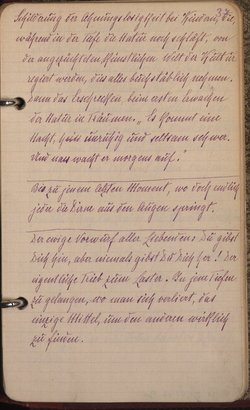 37.
Schilderung der Ahnungslosigkeit bei Kindern, die,
während in der Tiefe die Natur noch schläft, von
da angezüchteten Kunst der Kultur
regiert werden, das alles buchstäblich nehmen.
Dann das Erschrecken, beim ersten Erwachen
der Natur in Träumen. „Es kommt eine
Nacht, unruhig und seltsam schwer.
Und was wacht er morgens auf."
Bis zu jenem letzten Moment, wo doch endlich
jede die Dirne aus den Augen springt.
Der ewige Vorwurf aller Liebenden: Du gibst
Dich hin, aber niemals gibst Du Dich her! Der
eigentliche Trieb zum Laster. In jene Tiefen
zu gelangen, wo man sich verliert, das
einzige Mittel, um den anderen wirklich
zu finden.